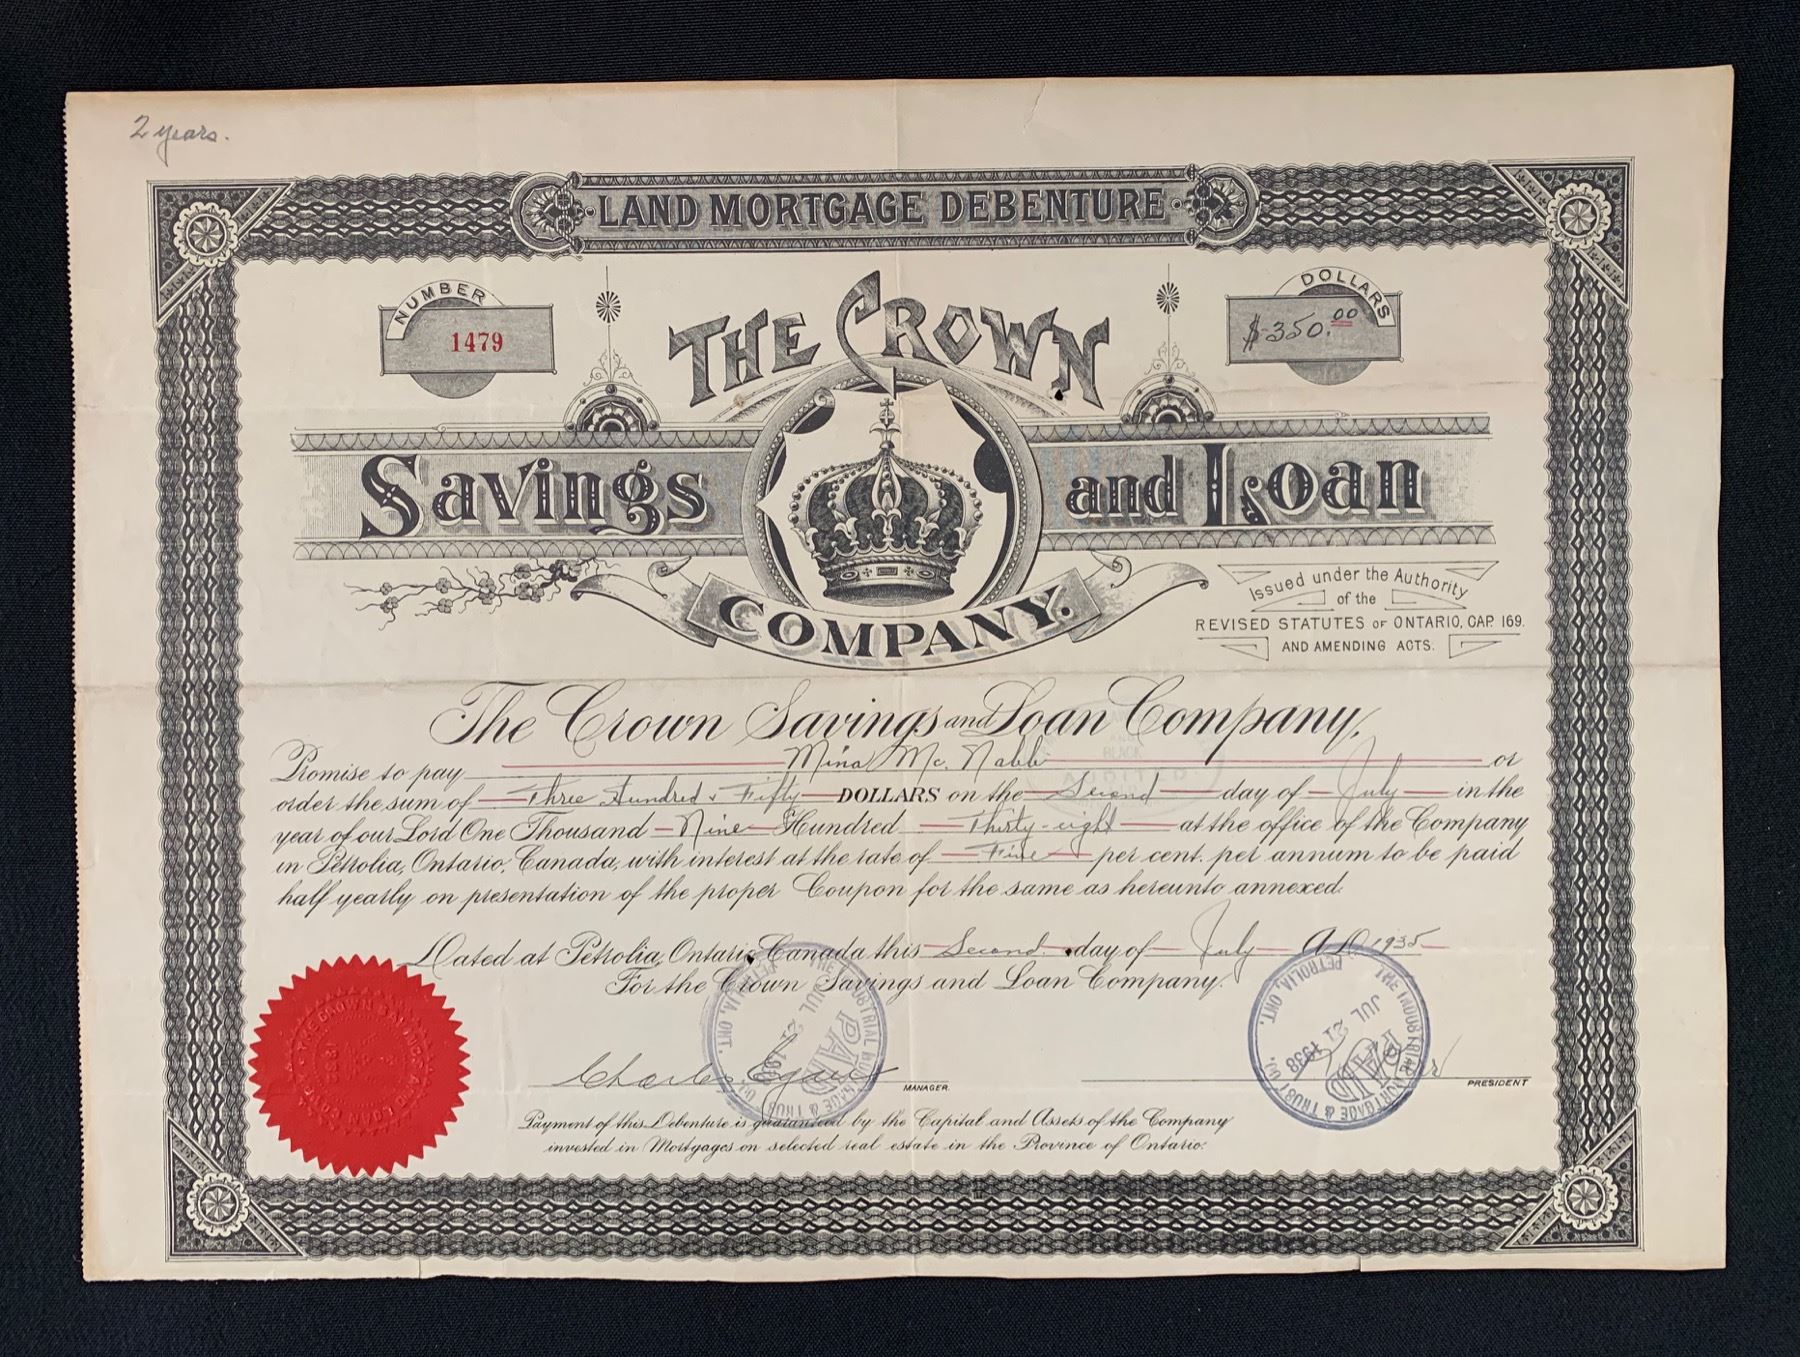 2 years.
LAND MORTGAGE DEBENTURE
NUMBER
1479
DOLLARS
$350.00
THE CROWN
Savings and Loan
COMPANY.
Issued under the Authority
of the
REVISED STATUTES OF ONTARIO, CAP. 169.
AND AMENDING ACTS.
The Crown Savings and Loan Company,
Promise to pay Mina Mc. Nabb or
order the sum of Three Hundred & Fifty DOLLARS on the Second day of July in the
year of our Lord One Thousand Nine Hundred Thirty-eight at the office of the Company
in Petrolia, Ontario, Canada, with interest at the rate of Five per cent. per annum to be paid
half yearly on presentation of the proper Coupon for the same as hereunto annexed.
Dated at Petrolia, Ontario, Canada this Second day of July A.D. 1935
For the Crown Savings and Loan Company.
THE CROWN SAVINGS AND LOAN COMPY.
THE INDUSTRIAL MORTGAGE & TRUST CO.
PAID
JUL 21 1938
PETROLIA, ONT.
THE INDUSTRIAL MORTGAGE & TRUST CO.
PAID
JUL 21 1938
PETROLIA, ONT.
Charles
MANAGER.
PRESIDENT
Payment of this Debenture is guaranteed by the Capital and Assets of the Company
invested in Mortgages on selected real estate in the Province of Ontario.